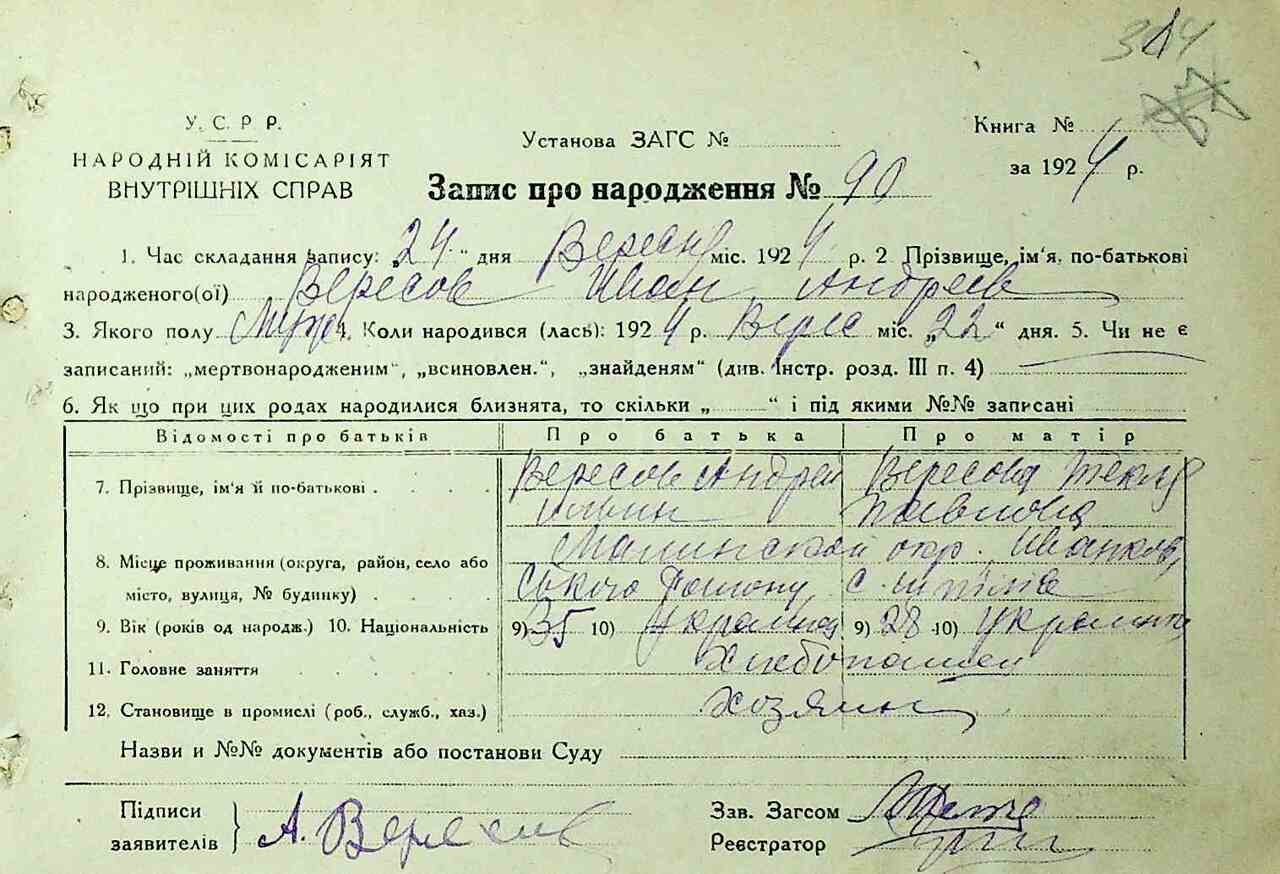 314
У. С. Р Р.
НАРОДНІЙ КОМІСАРІЯТ
ВНУТРІШНІХ СПРАВ
Установа ЗАГС №
Книга №
за 1924 р.
Запис про народження № 90
1. Час складання запису: „24“ дня Вересня міс. 1924 р. 2 Прізвище, ім'я, по-батькові
народженого(ої) Вересов Иван Андреев
3. Якого полу Муж 4. Коли народився (лась): 1924 р. Верес міс. „22“ дня. 5. Чи не є
записаний: „мертвонародженим“, „всиновлен.“, „знайденям“ (див. Інстр. розд. III п. 4)
6. Як що при цих родах народилися близнята, то скільки „ “ і під якими №№ записані
Відомості про батьків Про батька Про матір
7. Прізвище, ім'я й по-батькові . Вересов Андрей Вересова Текля
Ильин Павлова
Малинской окр. Иванков
8. Місце проживання (округа, район, село або
місто, вулиця, № будинку) . ського району с.
9. Вік (років од народж.) 10. Національність 9) 35 10) Украинец 9) 28 10) Украинка
11. Головне заняття Хлебопашец
12. Становище в промислі (роб., служб., хаз.) хозяин
Назви и №№ документів або постанови Суду
Підписи
заявителів
А. Вересов
Зав. Загсом
Реєстратор